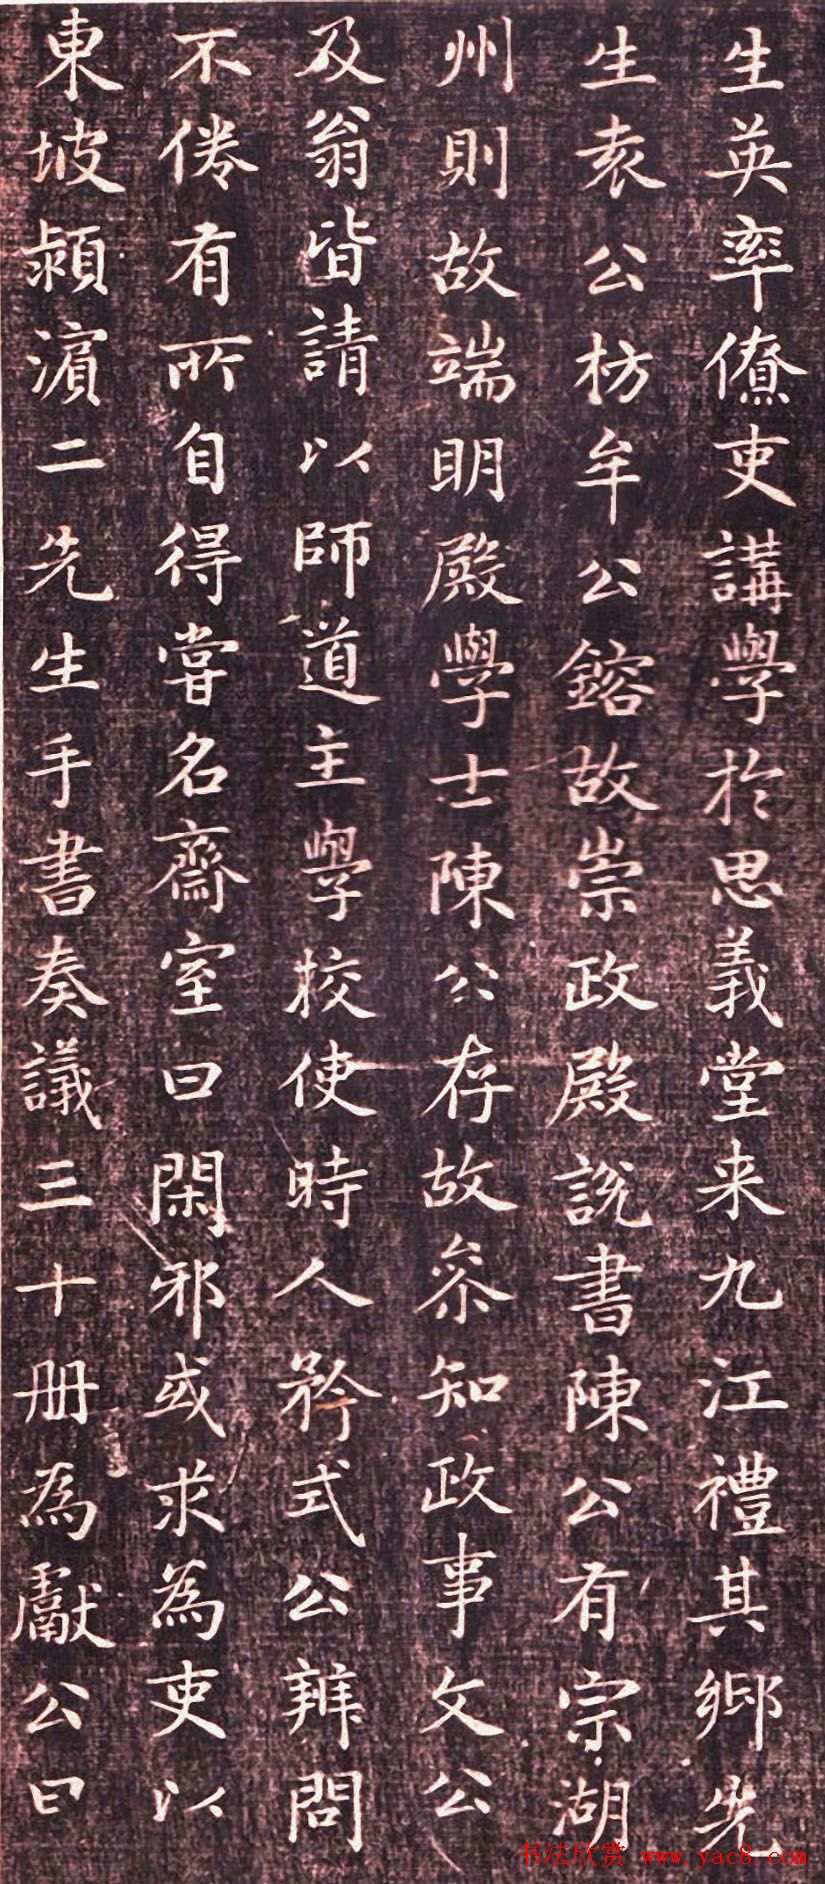 生英率僚吏講學於思義堂来九江禮其鄉先
生袁公枋牟公鎔故崇政殿説書陳公有宗湖
州則故端明殿學士陳公存故叅知政事文公
及翁皆請以師道主學校使時人矜式公辨問
不倦有所自得嘗名齋室曰閑邪或求為吏以
東坡潁濵二先生手書奏議三十册為獻公曰
书法欣赏 www.yac8.com